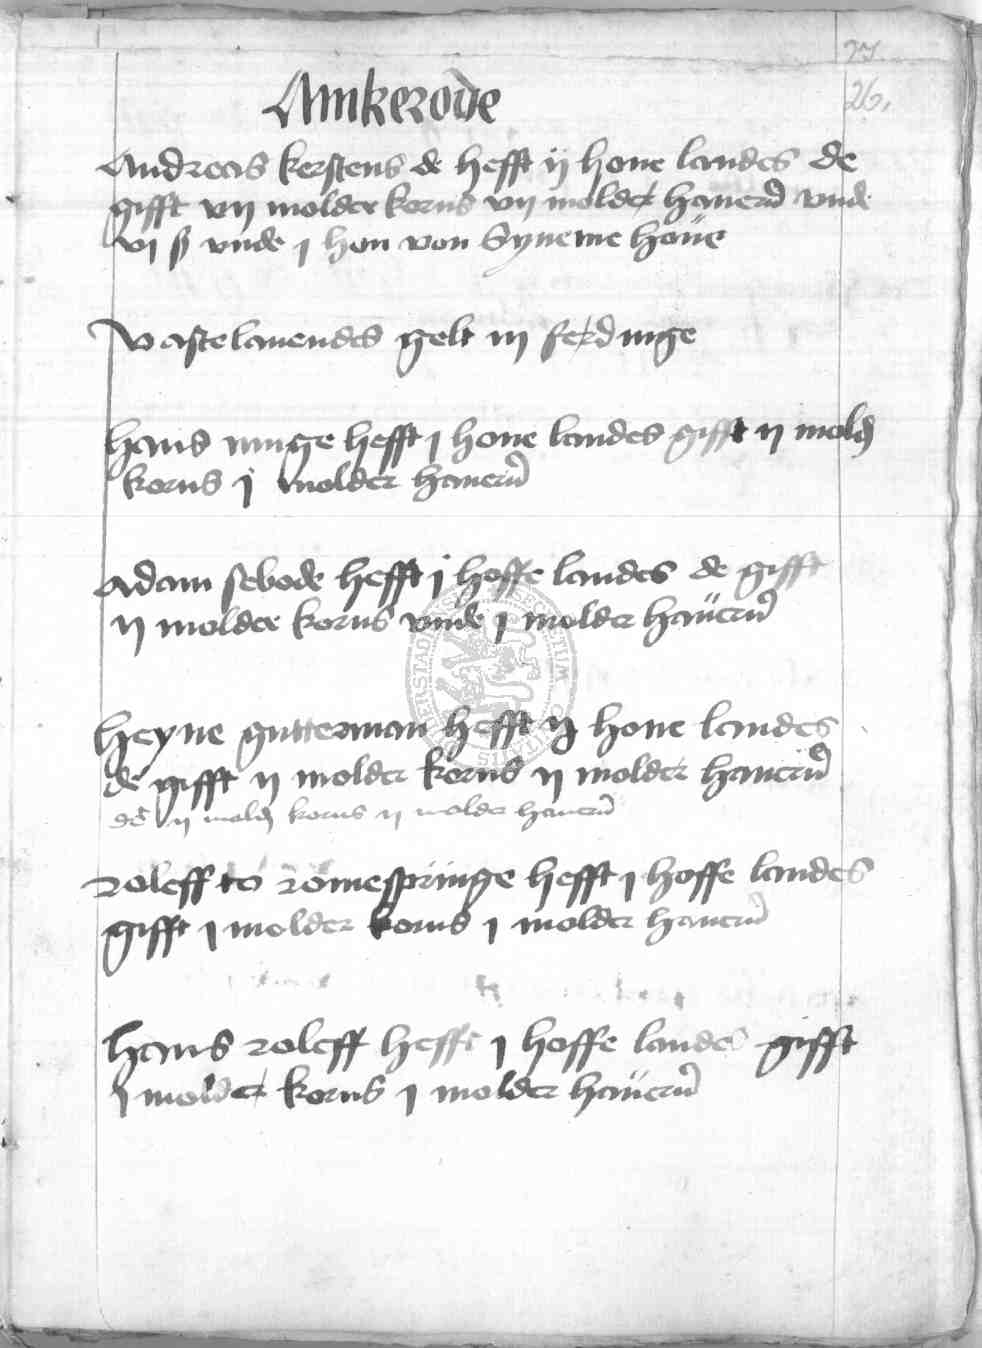 27.
26.
Ankerode
Andreas kerstens de hefft ij houe landes de
gifft vij molder korns vij molder hauern̄ vnde
vj ß vnde j hon von Syneme houe
vastelauendes gelt iij ferdinge
hans runge hefft j houe landes gifft ij mold
korns j molder hauern̄
Adam sebode hefft j hoffe landes de gifft
ij molder korns vnde j molder hauern̄
heyne gutterman hefft ij houe landes
de gifft ij molder korns ij molder hauern̄
ij mold korns ij molder hauern̄
roleff to romespringe hefft j hoffe landes
gifft j molder korns j molder hauern̄
hans roleff hefft j hoffe landes gifft
j molder korns j molder hauern̄